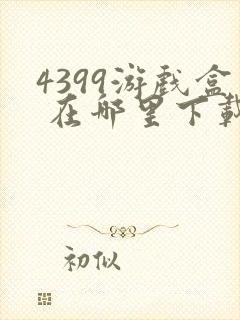 4399游戏盒
在哪里下载
初似